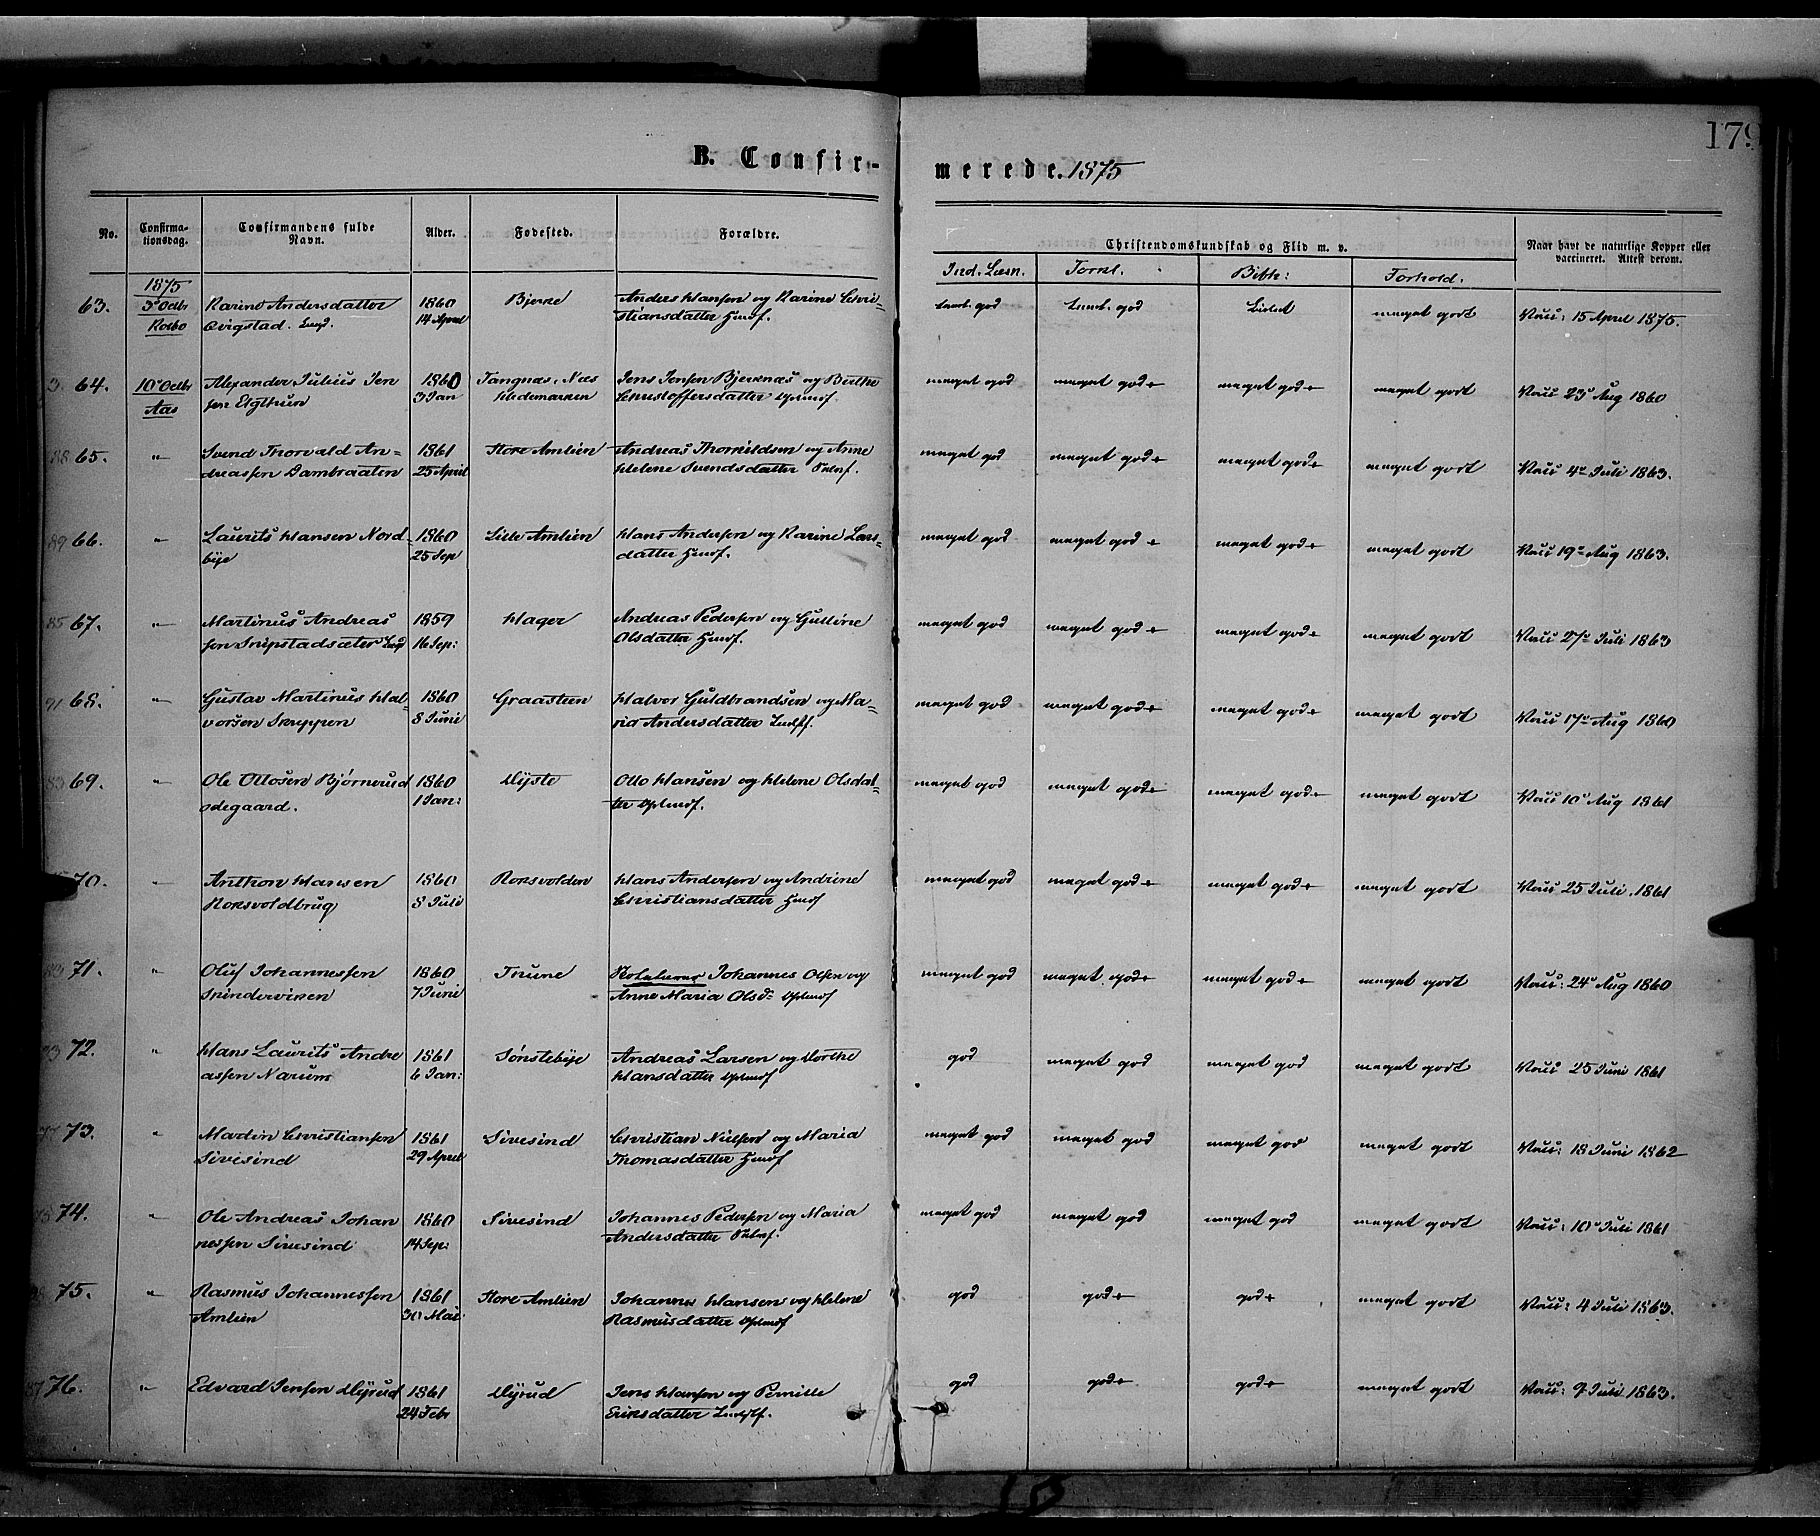 179
B. Confir-
merede. 1875
No.
Confirma-
tionsdag.
Confirmandens fulde
Navn.
Alder.
Fødested.
Forældre.
Christendomskundskab og Flid m. v.
Naar havt de naturlige Kopper eller
vaccineret. Attest derom.
Ind. Læsn.
Forkl.
Bibh:
Forhold.
1875
63. 3 Octbr Karine Andersdatter 1860 Bjerke Anders Hansen og Karine Chri- temb. god temb. god meget godt Vacc: 15 April 1875.
14 April stiansdatter Huusf.
64. 10 Octbr Alexander Julius Jen 1860 Tangnæs, Næs Jens Jensen Bjerknæs og Berthe meget god meget god + meget god + meget godt Vacc 23 Aug 1860
Aas sen Elgthun 3 Jan Hedemarken Christoffersdatter
65. " Svend Thorvald An= 1861 Store Amlien Andreas Thorkildsen og Anne meget god meget god + meget god + meget godt Vacc 4 Juli 1863.
dreassen Dambraaten 25 April Helene Svendsdatter
66. " Laurits Hansen Nord= 1860 Lille Amlien Hans Andersen og Karine Lars= meget god meget god + meget god + meget godt Vacc 19 Aug 1863.
bye 25 Sep datter Huusf.
67. " Martinus Andreas 1859 Hager Andreas Pedersen og Gulline meget god meget god + meget god + meget godt Vacc 27 Juli 1863
sen Snipstadsæter 16 Sep: Olsdatter Huusf.
68. " Gustav Martinus Hal= 1860 Graasteen Halvor Guldbrandsen og Ma= meget god meget god + meget god + meget godt Vacc 17 Aug 1860
vorsen Skreppen 8 Juni ria Andersdatter
69. " Ole Ottosen Bjørnerud 1860 Dyste Otto Hansen og Helene Olsdat= meget god meget god + meget god + meget godt Vacc 10 Aug 1861
ødegaard. 1 Jan: ter
70. " Anthon Hansen 1860 Roksvolden Hans Andersen og Andrine meget god meget god + meget god + meget godt Vacc 25 Juli 1861
Roksvoldbrug 8 Juli Christiansdatter Huusf
71. " Oluf Johannessen 1860 Trune Skolelærer Johannes Olsen og meget god meget god + meget god + meget godt Vacc: 24 Aug 1860
Spinderviken 7 Juni Anne Maria Olsd:
72. " Hans Laurits Andre 1861 Sønstebye Andreas Larsen og Dorthe god meget god meget god meget godt Vacc 25 Juni 1861
assen Narum 6 Jan: Hansdatter
73. " Martin Christiansen 1861 Sivesind Christian Nielsen og Maria meget god meget god meget god meget godt Vacc: 18 Juni 1862
Sivesind 29 April Thomasdatter Huusf
74. " Ole Andreas Johan 1860 Sivesind Johannes Pedersen og Maria meget god meget god meget god meget godt Vacc: 10 Juli 1861
nessen Sivesind 14 Sep: Andersdatter
75. " Rasmus Johannessen 1861 Store Amlien Johannes Hansen og Helene god god + god + meget godt Vacc: 4 Juli 1863.
Amlien 30 Mai Rasmusdatter
76. " Edvard Jensen Dyrud 1861 Dyrud Jens Hansen og Pernille god god + god + meget godt Vacc: 9 Juli 1863.
24 Febr Eriksdatter